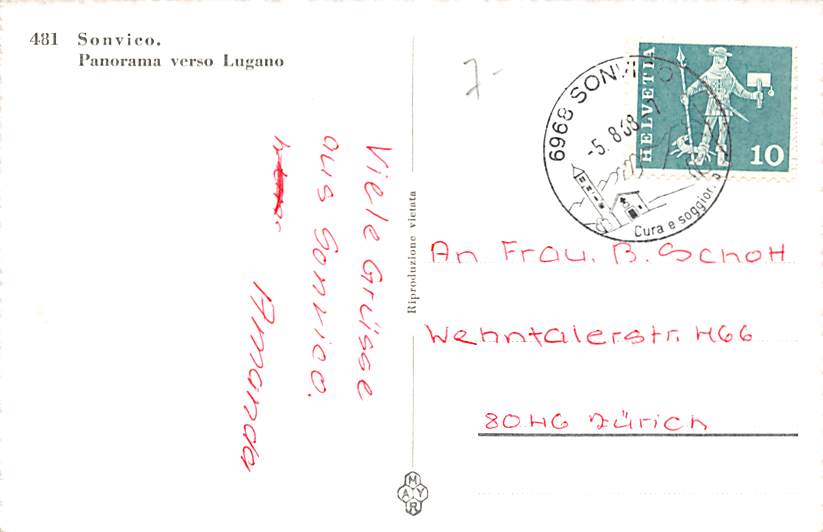 481 Sonvico.
Panorama verso Lugano
7-
6968 SONVICO
-5.8.68
Cura e soggior.
HELVETIA
10
Viele Grüsse
aus Sonvico.
Amanda
Riproduzione vietata
An Frau. B. Schott
Wehntalerstr. 466
8046 Zürich
MAYR